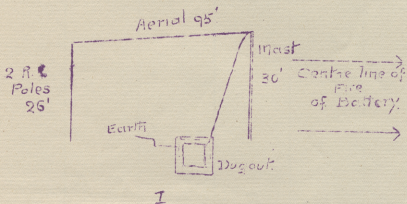 Aerial 95'
Mast
30'
2 R.E
Poles
26'
Centre line of
Fire
of Battery.
Earth
Dugout
I